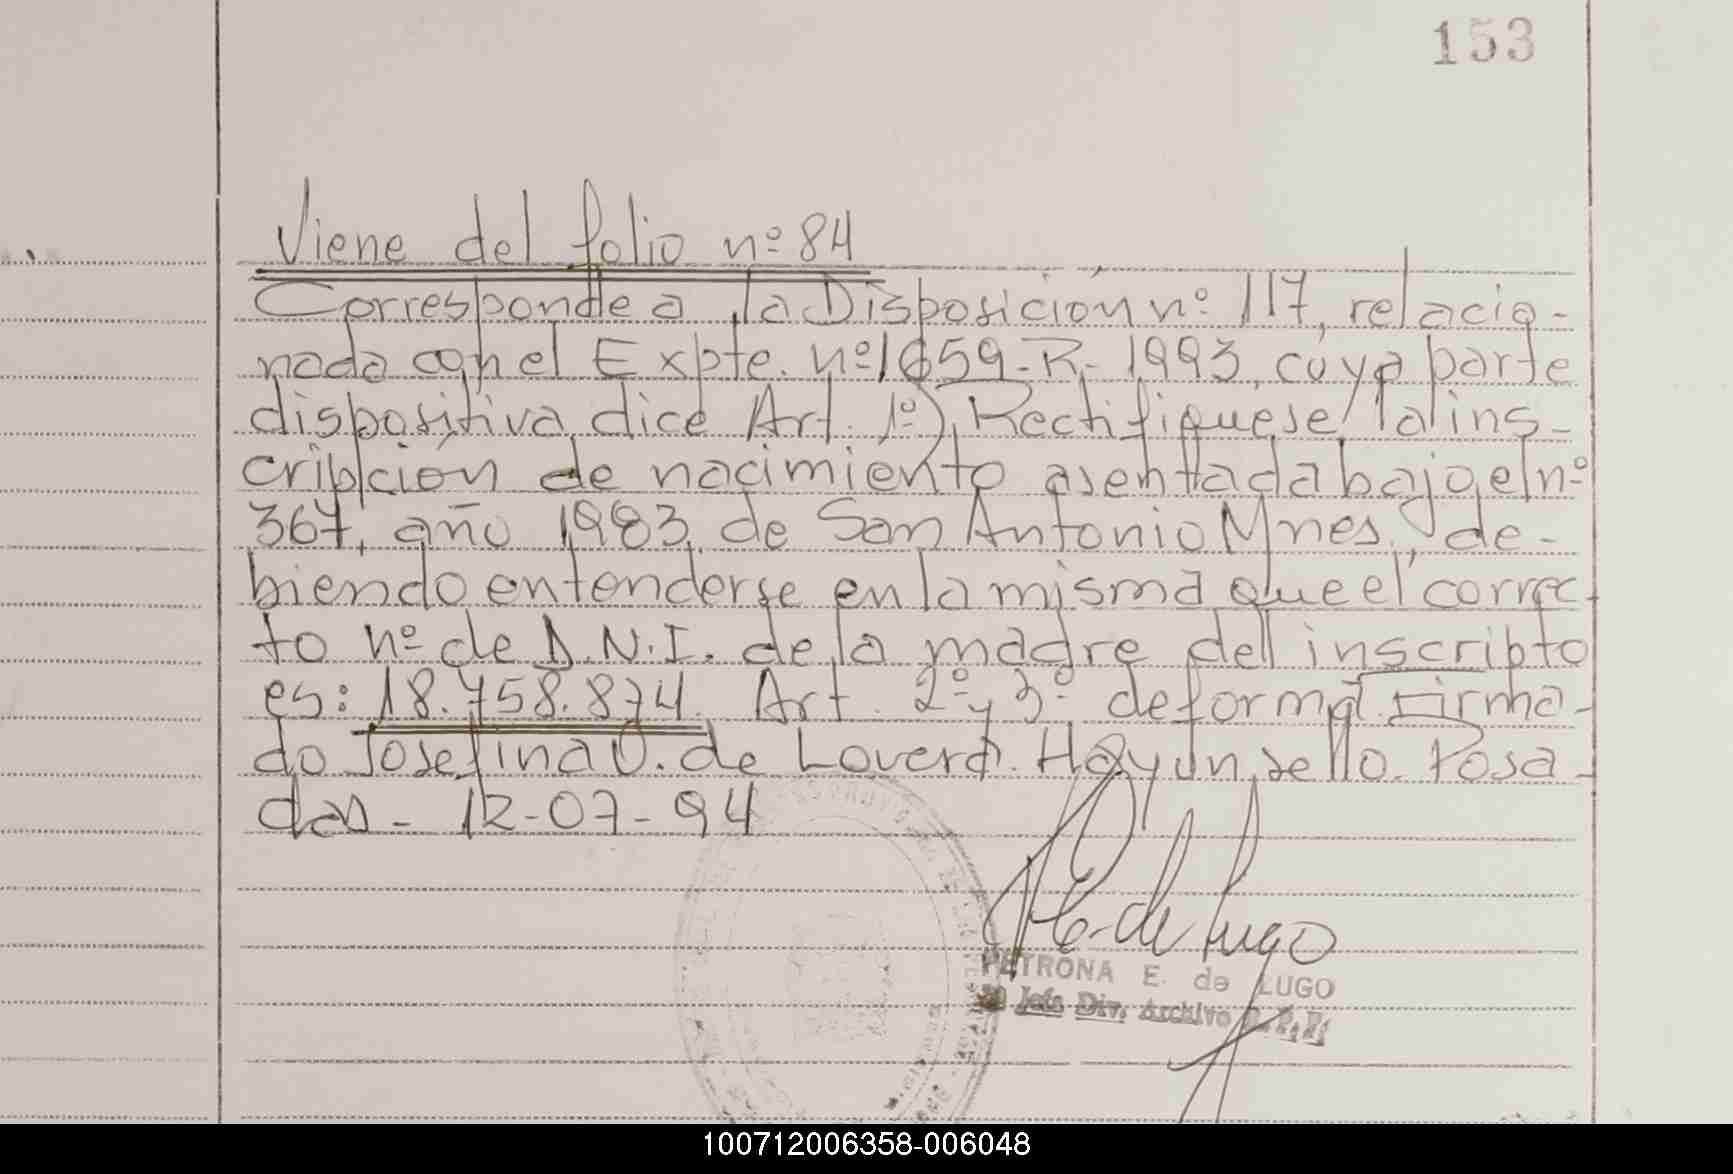 153
Viene del folio nº 84
Corresponde a la Disposición nº 117, relacio-
nada con el Expte. nº 1659-R-1993, cuya parte
dispositiva dice Art. 1º) Rectifiquese la ins-
cripción de nacimiento asentada bajo el nº
367, año 1983, de San Antonio Mnes, de-
biendo entenderse en la misma que el correc-
to nº de D.N.I. de la madre del inscripto
es: 18.758.874. Art. 2º y 3º de forma. Firma-
do Josefina O. de Lovera. Hay un sello. Posa-
das - 12-07-94
P. E. de Lugo
PETRONA E. de LUGO
Jefe Div. Archivo
100712006358-006048